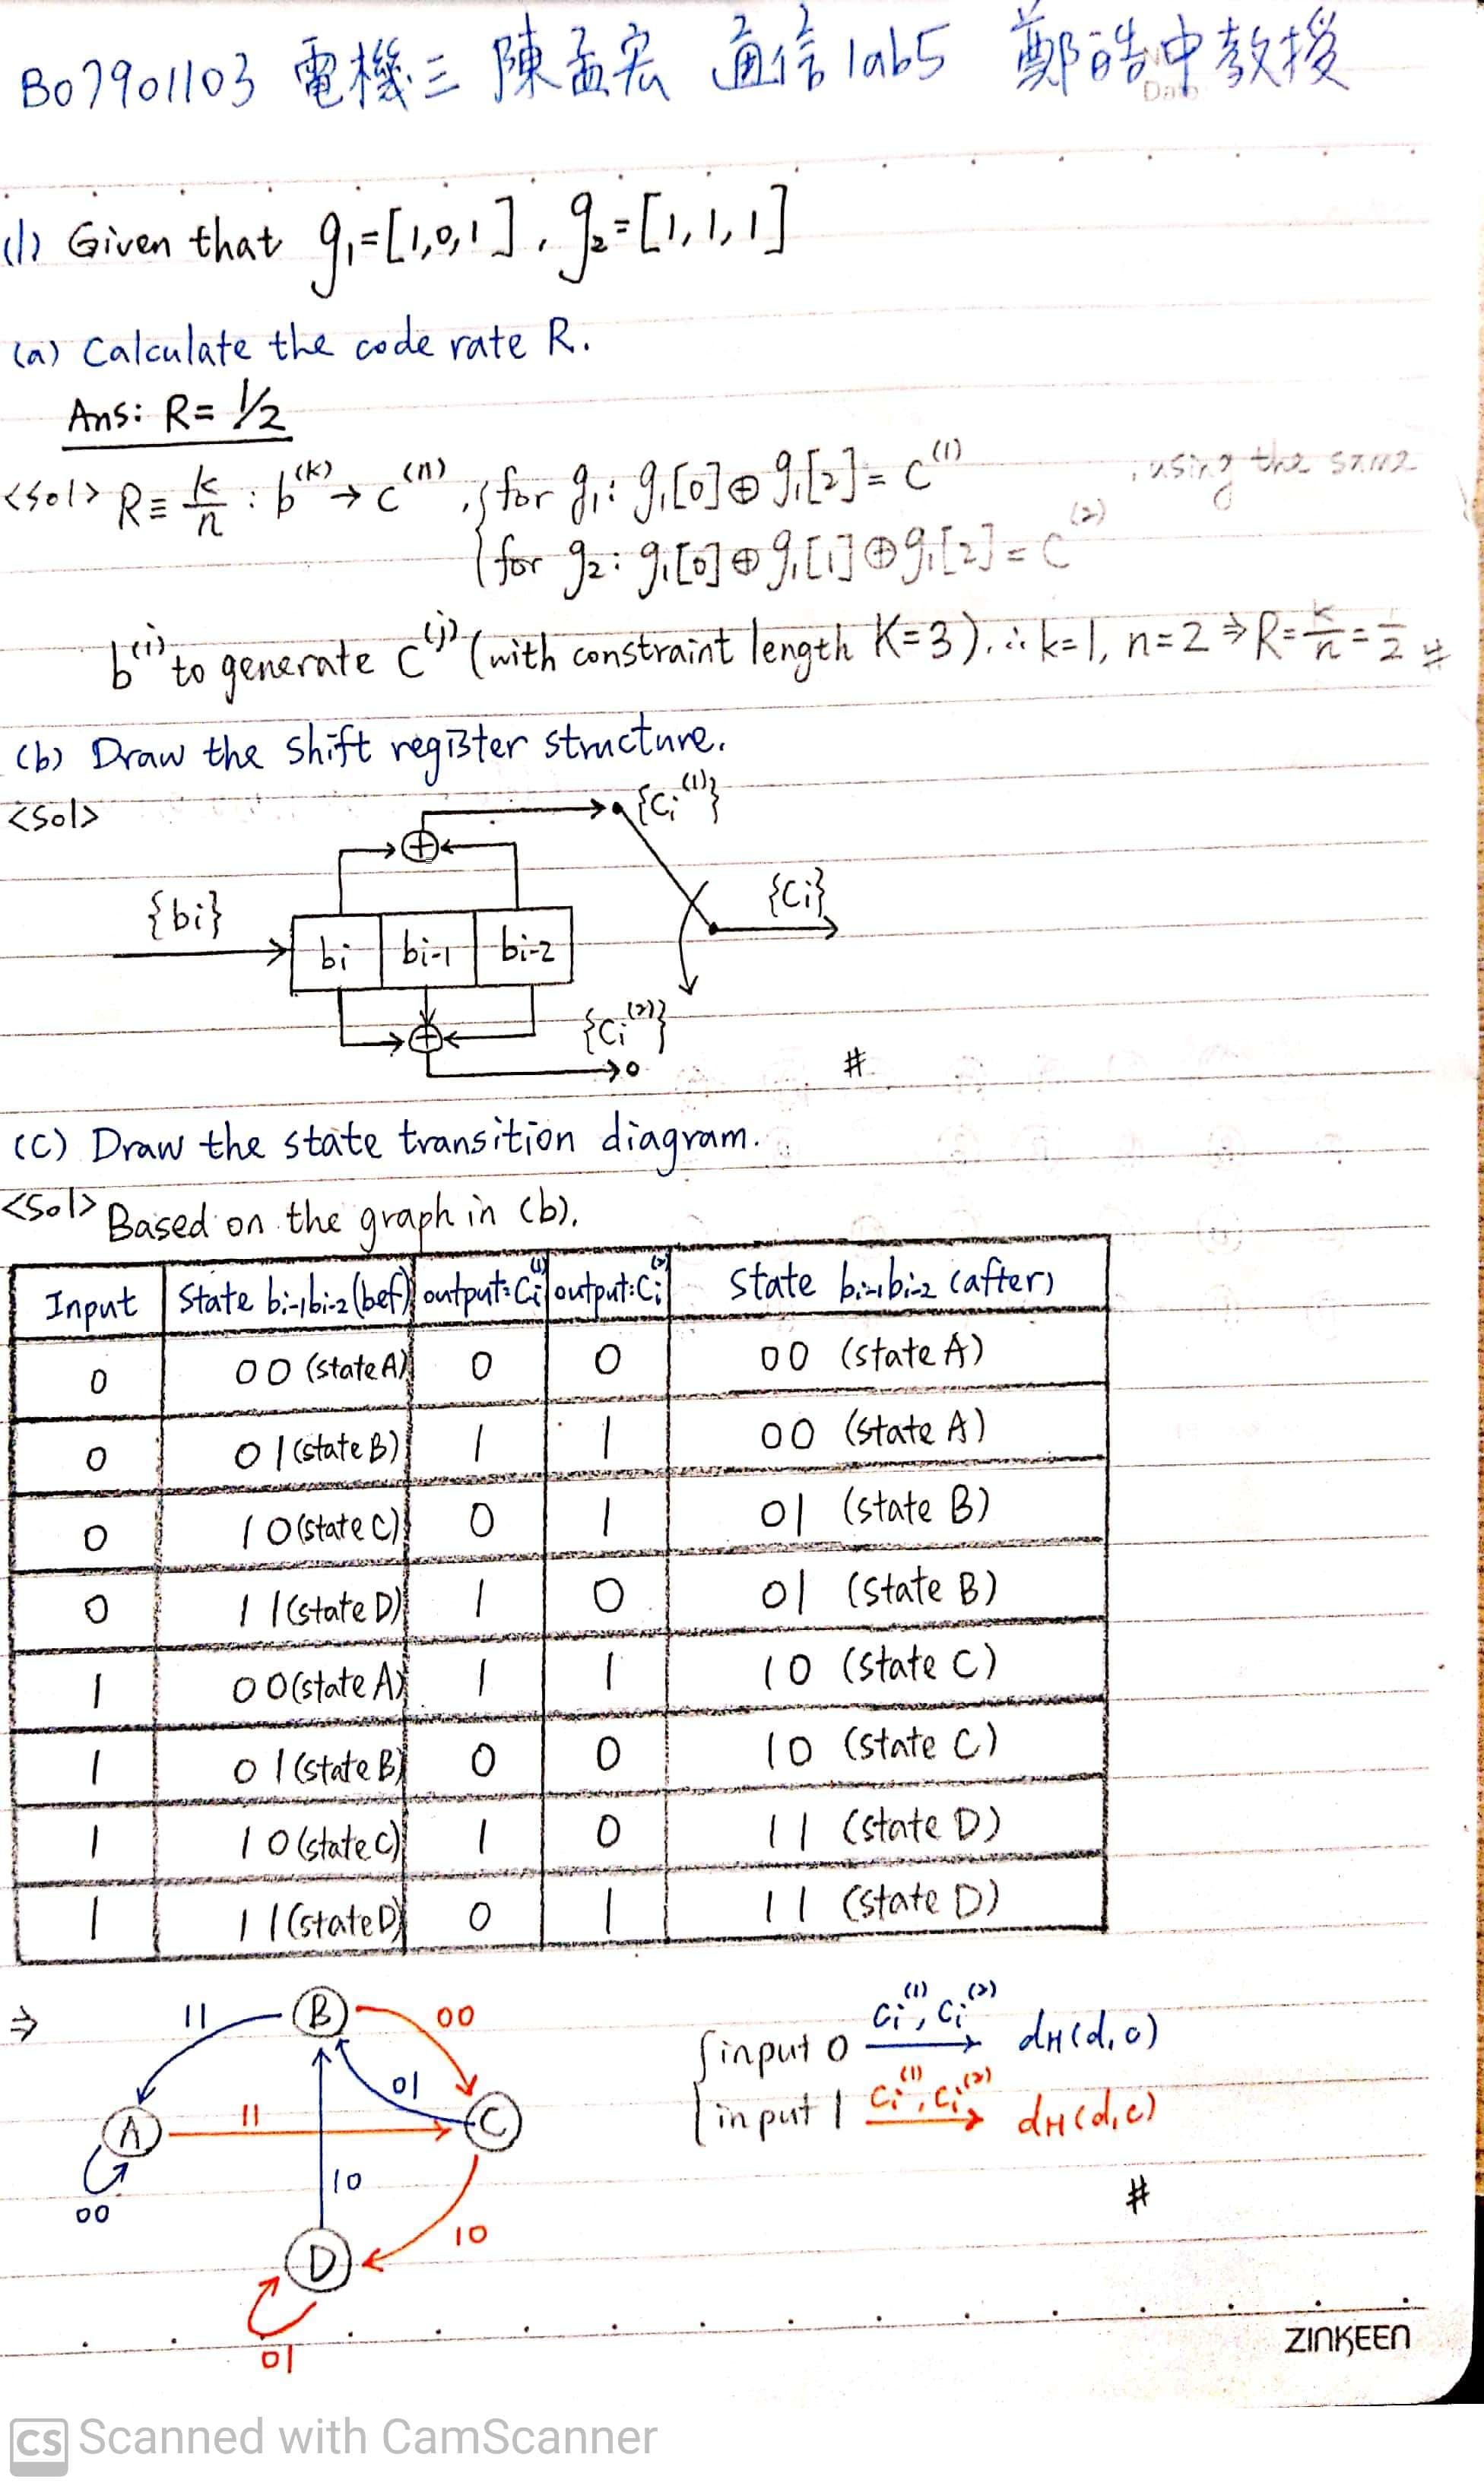 B07901103 電機三 陳孟宏 通信lab5 鄭皓中教授
Date
(1) Given that g₁=[1,0,1], g₂=[1,1,1]
(a) Calculate the code rate R.
Ans: R= 1/2
<sol> R≡ k/n : b⁽ᵏ⁾→c⁽ⁿ⁾, { for g₁: g₁[0]⊕g₁[2]=c⁽¹⁾ , using the same
for g₂: g₁[0]⊕g₁[1]⊕g₁[2]=c⁽²⁾
b⁽ⁱ⁾ to generate c⁽ʲ⁾ (with constraint length K=3). ∴ k=1, n=2 ⇒ R= k/n = 1/2 #
(b) Draw the shift register structure.
<sol>
{cᵢ⁽¹⁾}
{bi} {Ci}
bi bi-1 bi-2
{cᵢ⁽²⁾}
#
(c) Draw the state transition diagram.
<sol> Based on the graph in (b),
Input State bi-1bi-2 (bef) output:Cᵢ⁽¹⁾ output:Cᵢ⁽²⁾ State bi-1bi-2 (after)
0 00 (state A) 0 0 00 (state A)
0 01 (state B) 1 1 00 (state A)
0 10 (state C) 0 1 01 (state B)
0 11 (state D) 1 0 01 (state B)
1 00 (state A) 1 1 10 (state C)
1 01 (state B) 0 0 10 (state C)
1 10 (state C) 1 0 11 (state D)
1 11 (state D) 0 1 11 (state D)
⇒ 11 B 00
{ input 0 Cᵢ⁽¹⁾, Cᵢ⁽²⁾ → dH(d,c)
01
A 11 C
input 1 Cᵢ⁽¹⁾, Cᵢ⁽²⁾ → dH(d,c)
00 10
#
D 10
01
ZINKEEN
CS Scanned with CamScanner